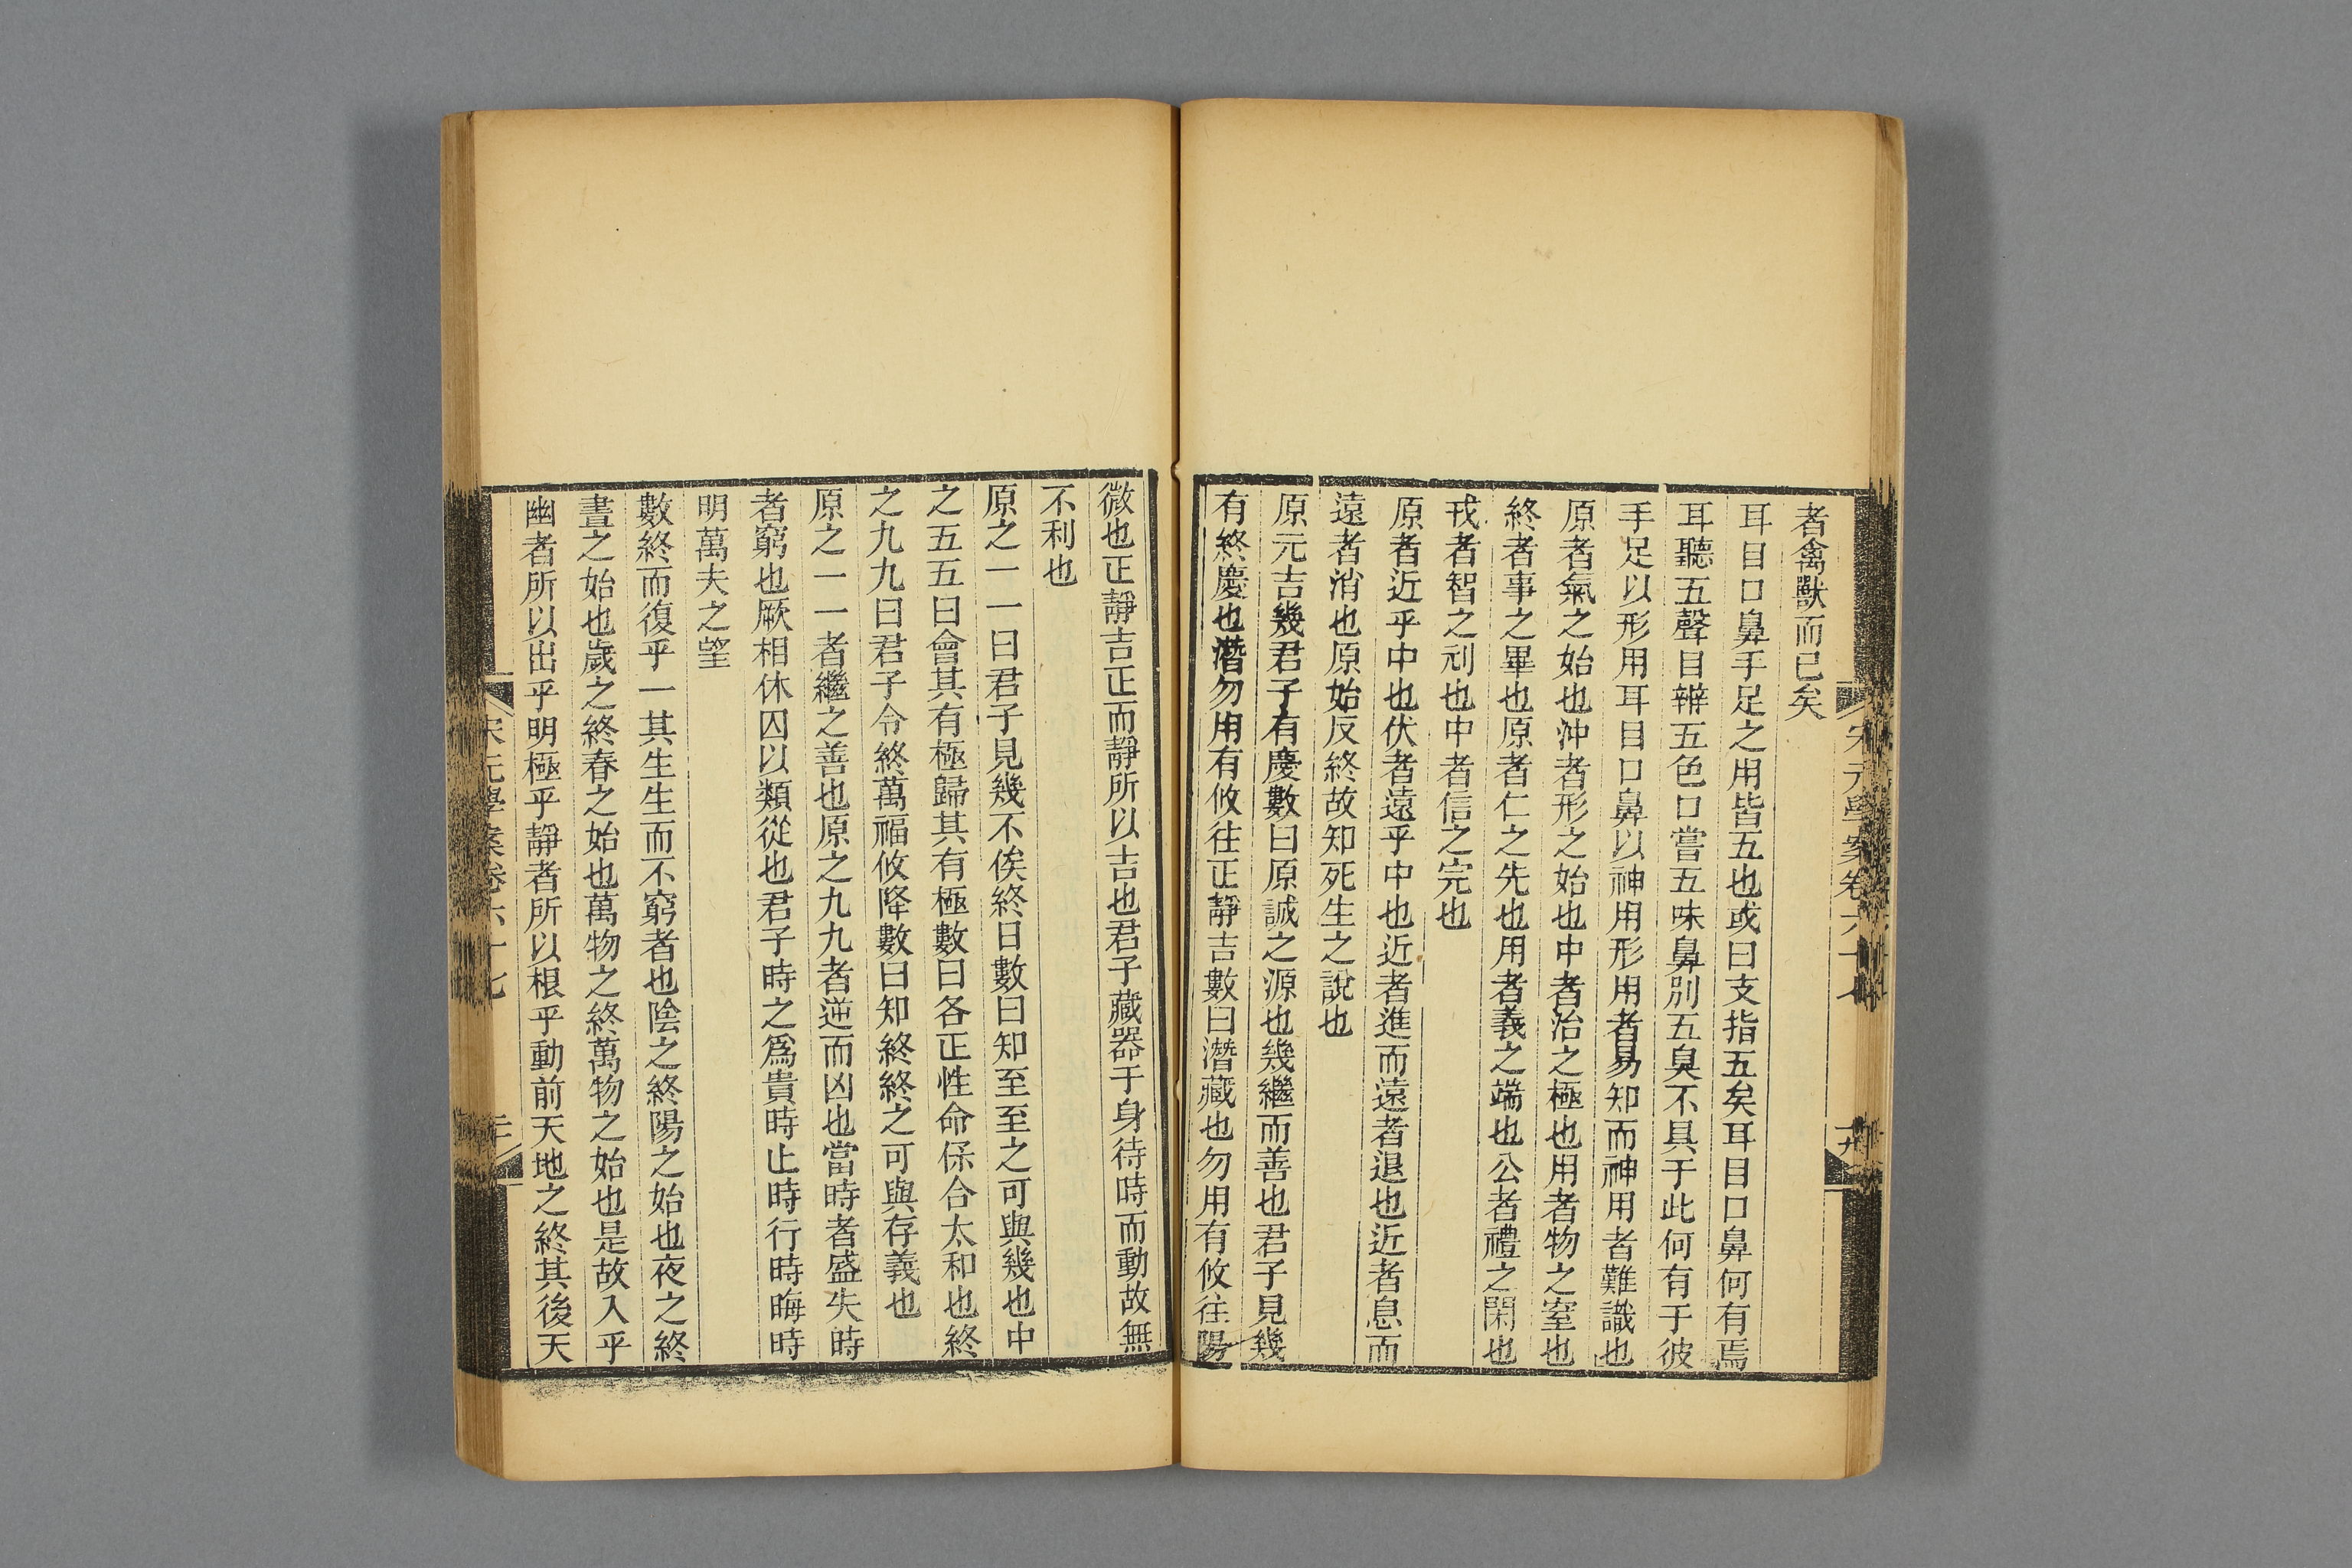 宋元學案卷六十七
者禽獸而已矣
耳目口鼻手足之用皆五也或曰支指五矣耳目口鼻何有焉
耳聽五聲目辨五色口嘗五味鼻別五臭不具于此何有于彼
手足以形用耳目口鼻以神用形用者易知而神用者難識也
原者氣之始也沖者形之始也中者治之極也用者物之窒也
終者事之畢也原者仁之先也用者義之端也公者禮之閑也
戎者智之刓也中者信之完也
原者近乎中也伏者遠乎中也近者進而遠者退也近者息而
遠者消也原始反終故知死生之說也
原元吉幾君子有慶數曰原誠之源也幾繼而善也君子見幾
有終慶也潛勿用有攸往正靜吉數曰潛藏也勿用有攸往陽
微也正靜吉正而靜所以吉也君子藏器于身待時而動故無
不利也
原之一一曰君子見幾不俟終日數曰知至至之可與幾也中
之五五曰會其有極歸其有極數曰各正性命保合太和也終
之九九曰君子令終萬福攸降數曰知終終之可與存義也
原之一一者繼之善也原之九九者逆而凶也當時者盛失時
者窮也厥相休囚以類從也君子時之爲貴時止時行時晦時
明萬夫之望
數終而復乎一其生生而不窮者也陰之終陽之始也夜之終
晝之始也歲之終春之始也萬物之終萬物之始也是故入乎
幽者所以出乎明極乎靜者所以根乎動前天地之終其後天
宋元學案卷六十七